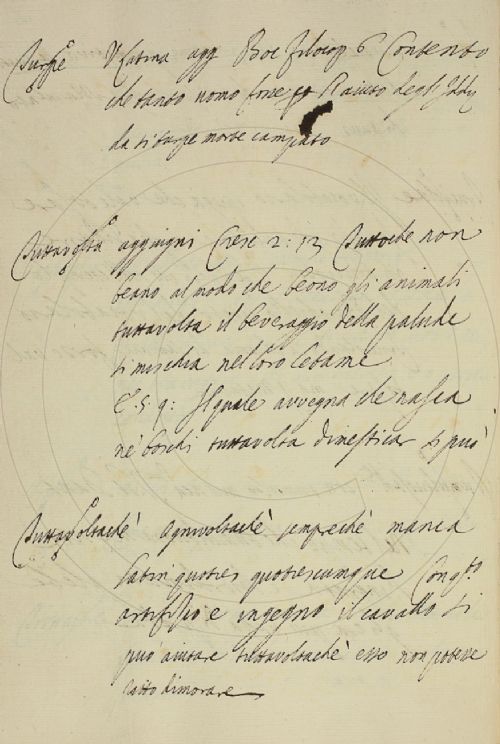 Turpe V. Latina agg Boc Filocop 6 Contento
che tanto uomo fosse p l'aiuto degl'Iddy
da sì turpe morte campato
Tuttavolta aggiugni Cresc 2: 13 Tuttoche non
beano al modo che beono gli animali
tuttavolta il beveraggio della palude
si mischia nel loro letame
E. 5. 9: Il quale avvegna che nasca
ne' boschi tuttavolta dimesticar si può
Tuttavoltachè Ognivoltachè semprechè manca
latin quoties quotiescumque Con qto
artifizio e ingegno il cavallo si
può aiutare tuttavoltachè esso non potesse
ratto dimorare